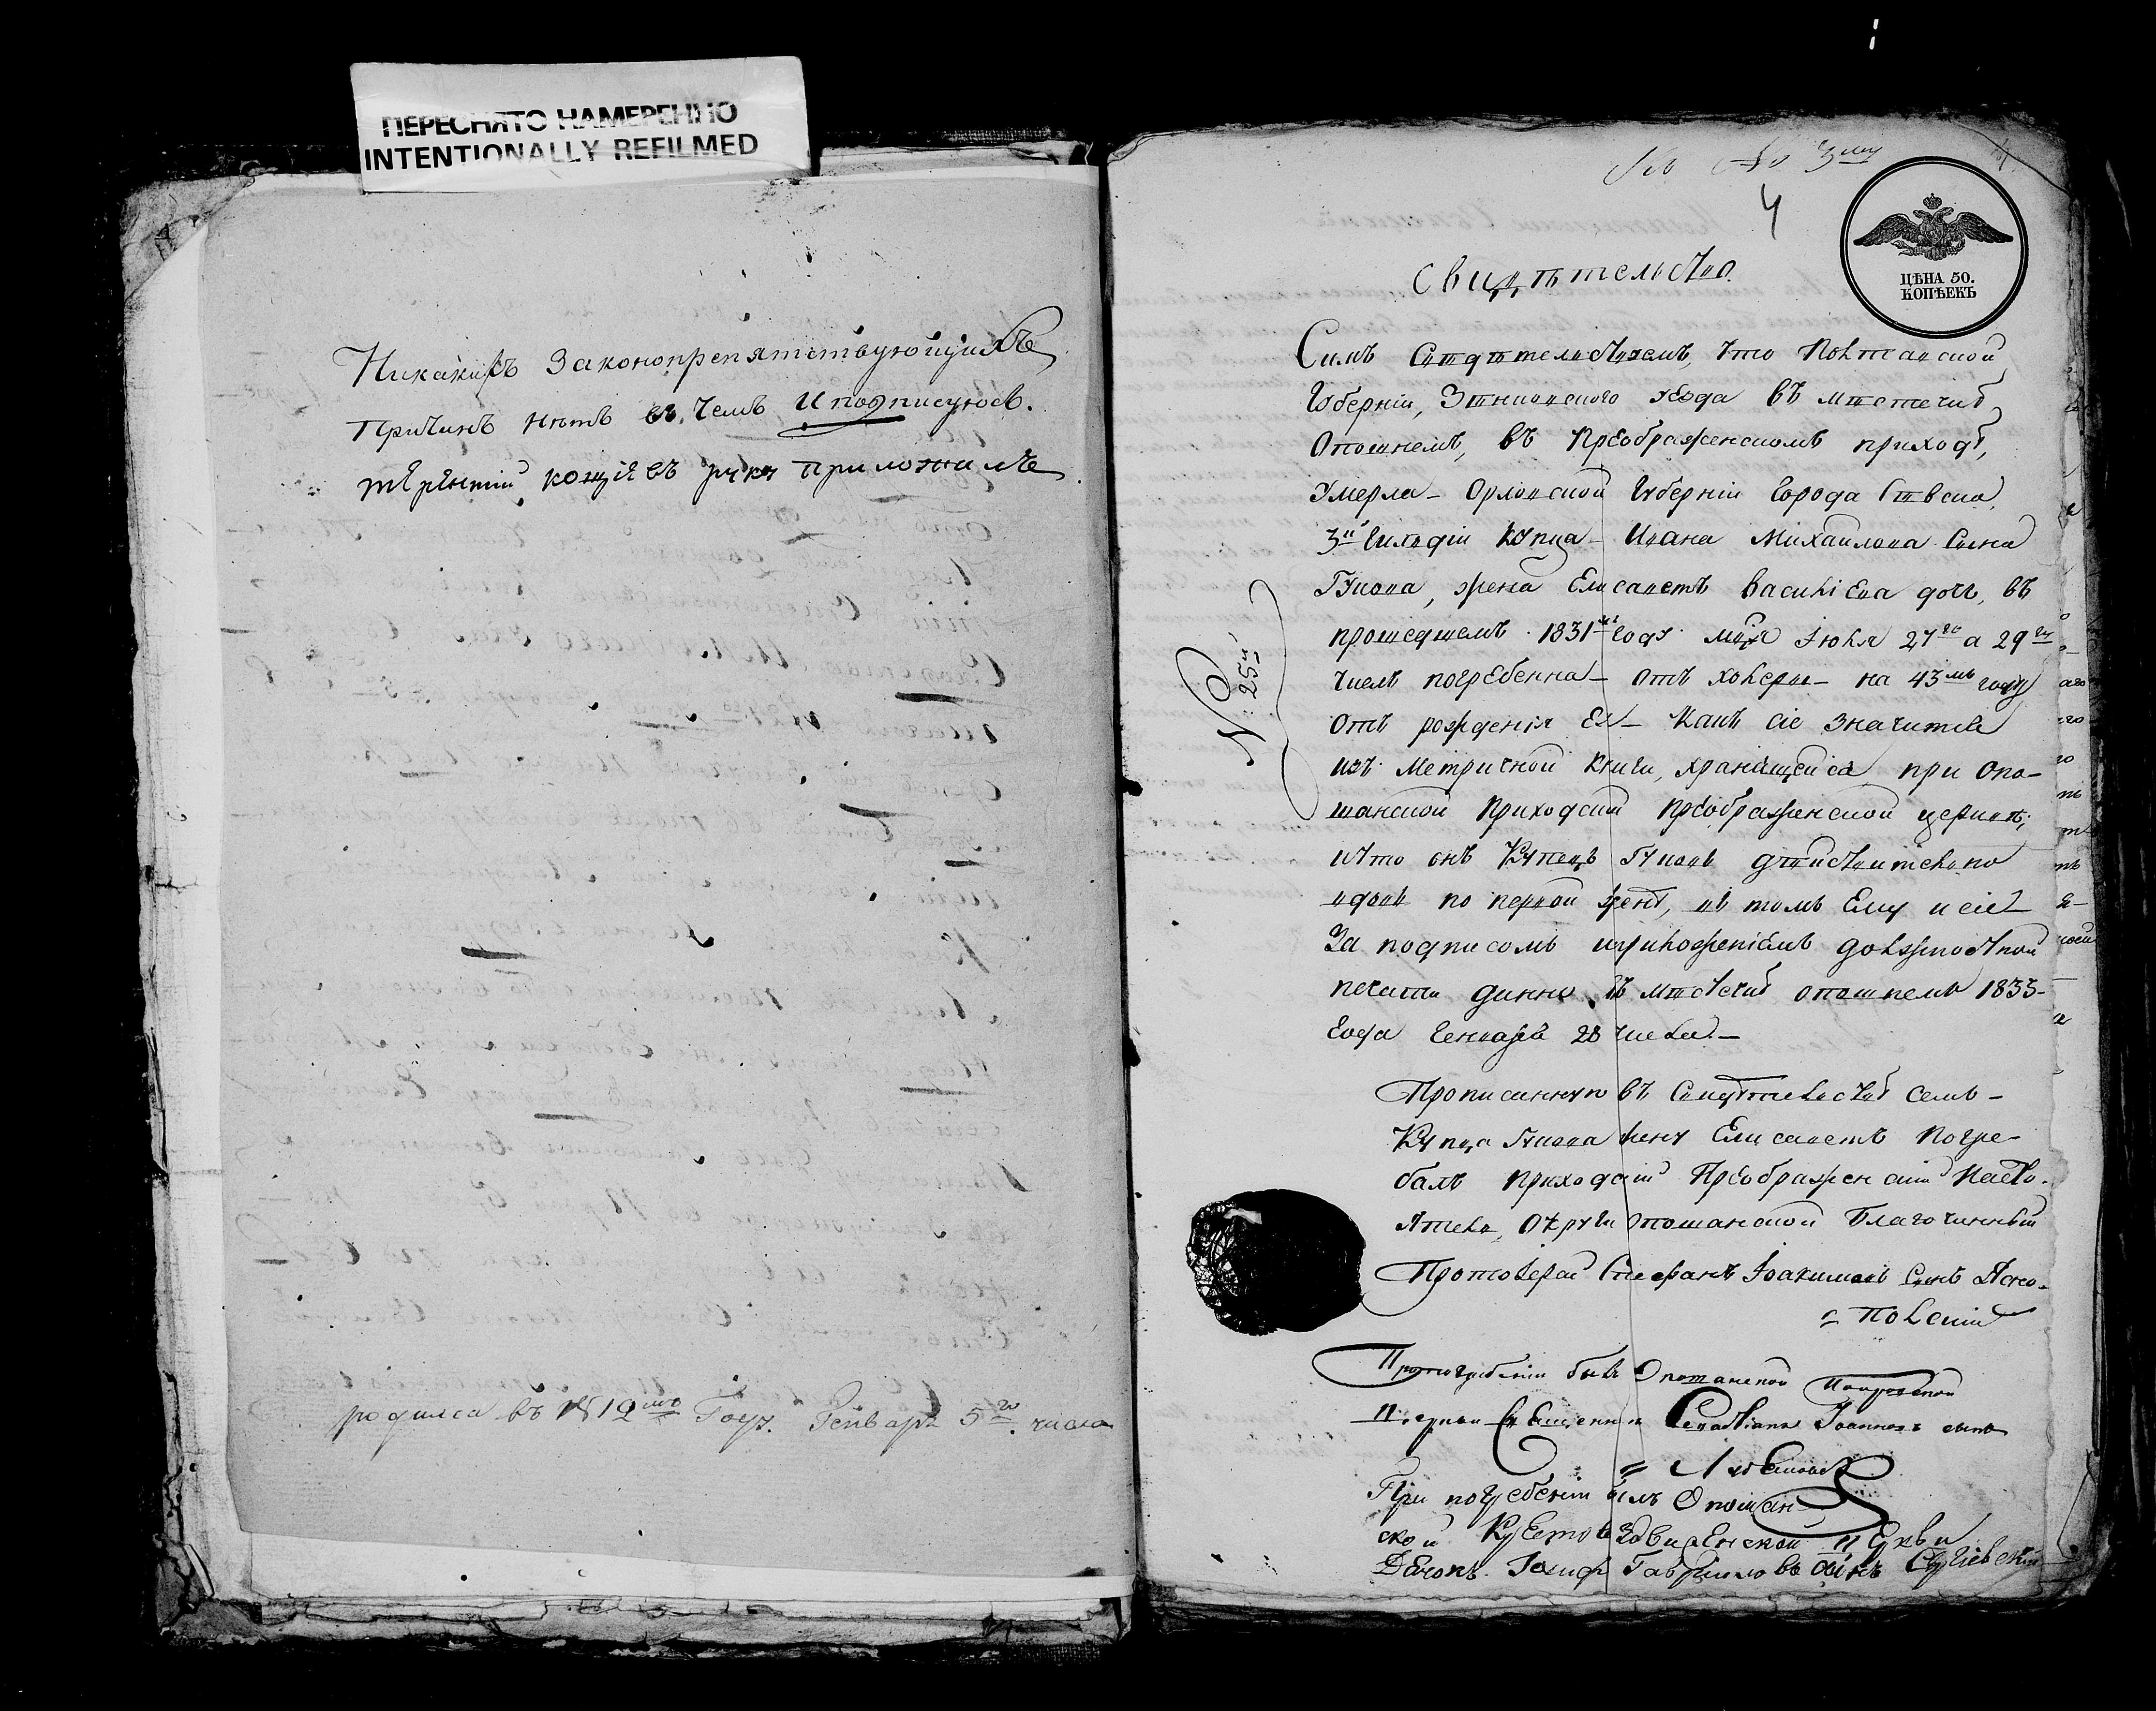 ПЕРЕСНЯТО НАМЕРЕННО
INTENTIONALLY REFILMED
Никакихъ законопрепятствующихъ
причинъ нѣтъ въ чемъ и подписуюсь.
руку приложилъ
родился въ 1812мъ Году. Генваря 5го числа
3му
4
ЦѢНА 50.
КОПѢЕКЪ
Свидѣтельство
Симъ Свидѣтельствуемъ, что Полтавской
Губерніи, Зѣньковского уезда въ мѣстечкѣ
Опошнемъ, въ Преображенскомъ приходѣ,
умерла - Орловской Губерніи города Сѣвска
3й Гильдіи Купца - Ивана Михайлова сына
Гукова, жена Елисаветъ Василіева дочь, въ
прошедшемъ 1831мъ году мця Іюля 27го а 29го
числъ погребенна - отъ холеры - на 43мъ году
отъ рожденія Ея - какъ сіе значится
изъ Метричной книги, хранящейся при Опо-
шанской приходской Преображенской церквѣ;
и что онъ Купецъ Гуковъ дѣйствительно
вдовъ по первой женѣ, въ томъ Ему и сіе
За подписомъ и приложеніемъ должностной
печати данно. въ мѣстечкѣ Опошнемъ 1833-
Года Генваря 28 числа. -
№ 25й
Прописанную въ Свидѣтельствѣ семъ -
Купца Гукова жену Елисаветъ погре-
балъ приходскій Преображенскій насто-
ятель, округи Опошанской Благочинный
Протоіерей Стефанъ Іоакимовъ сынъ Ясно-
= польскій
При погребеніи былъ Опошанской Покровской
церкви Священникъ Севастіанъ Іоанновъ сынъ
При погребеніи былъ Опошан
ской Крестовоздвиженской церкви
Дьяконъ Іосифъ Гавриловъ сынъ